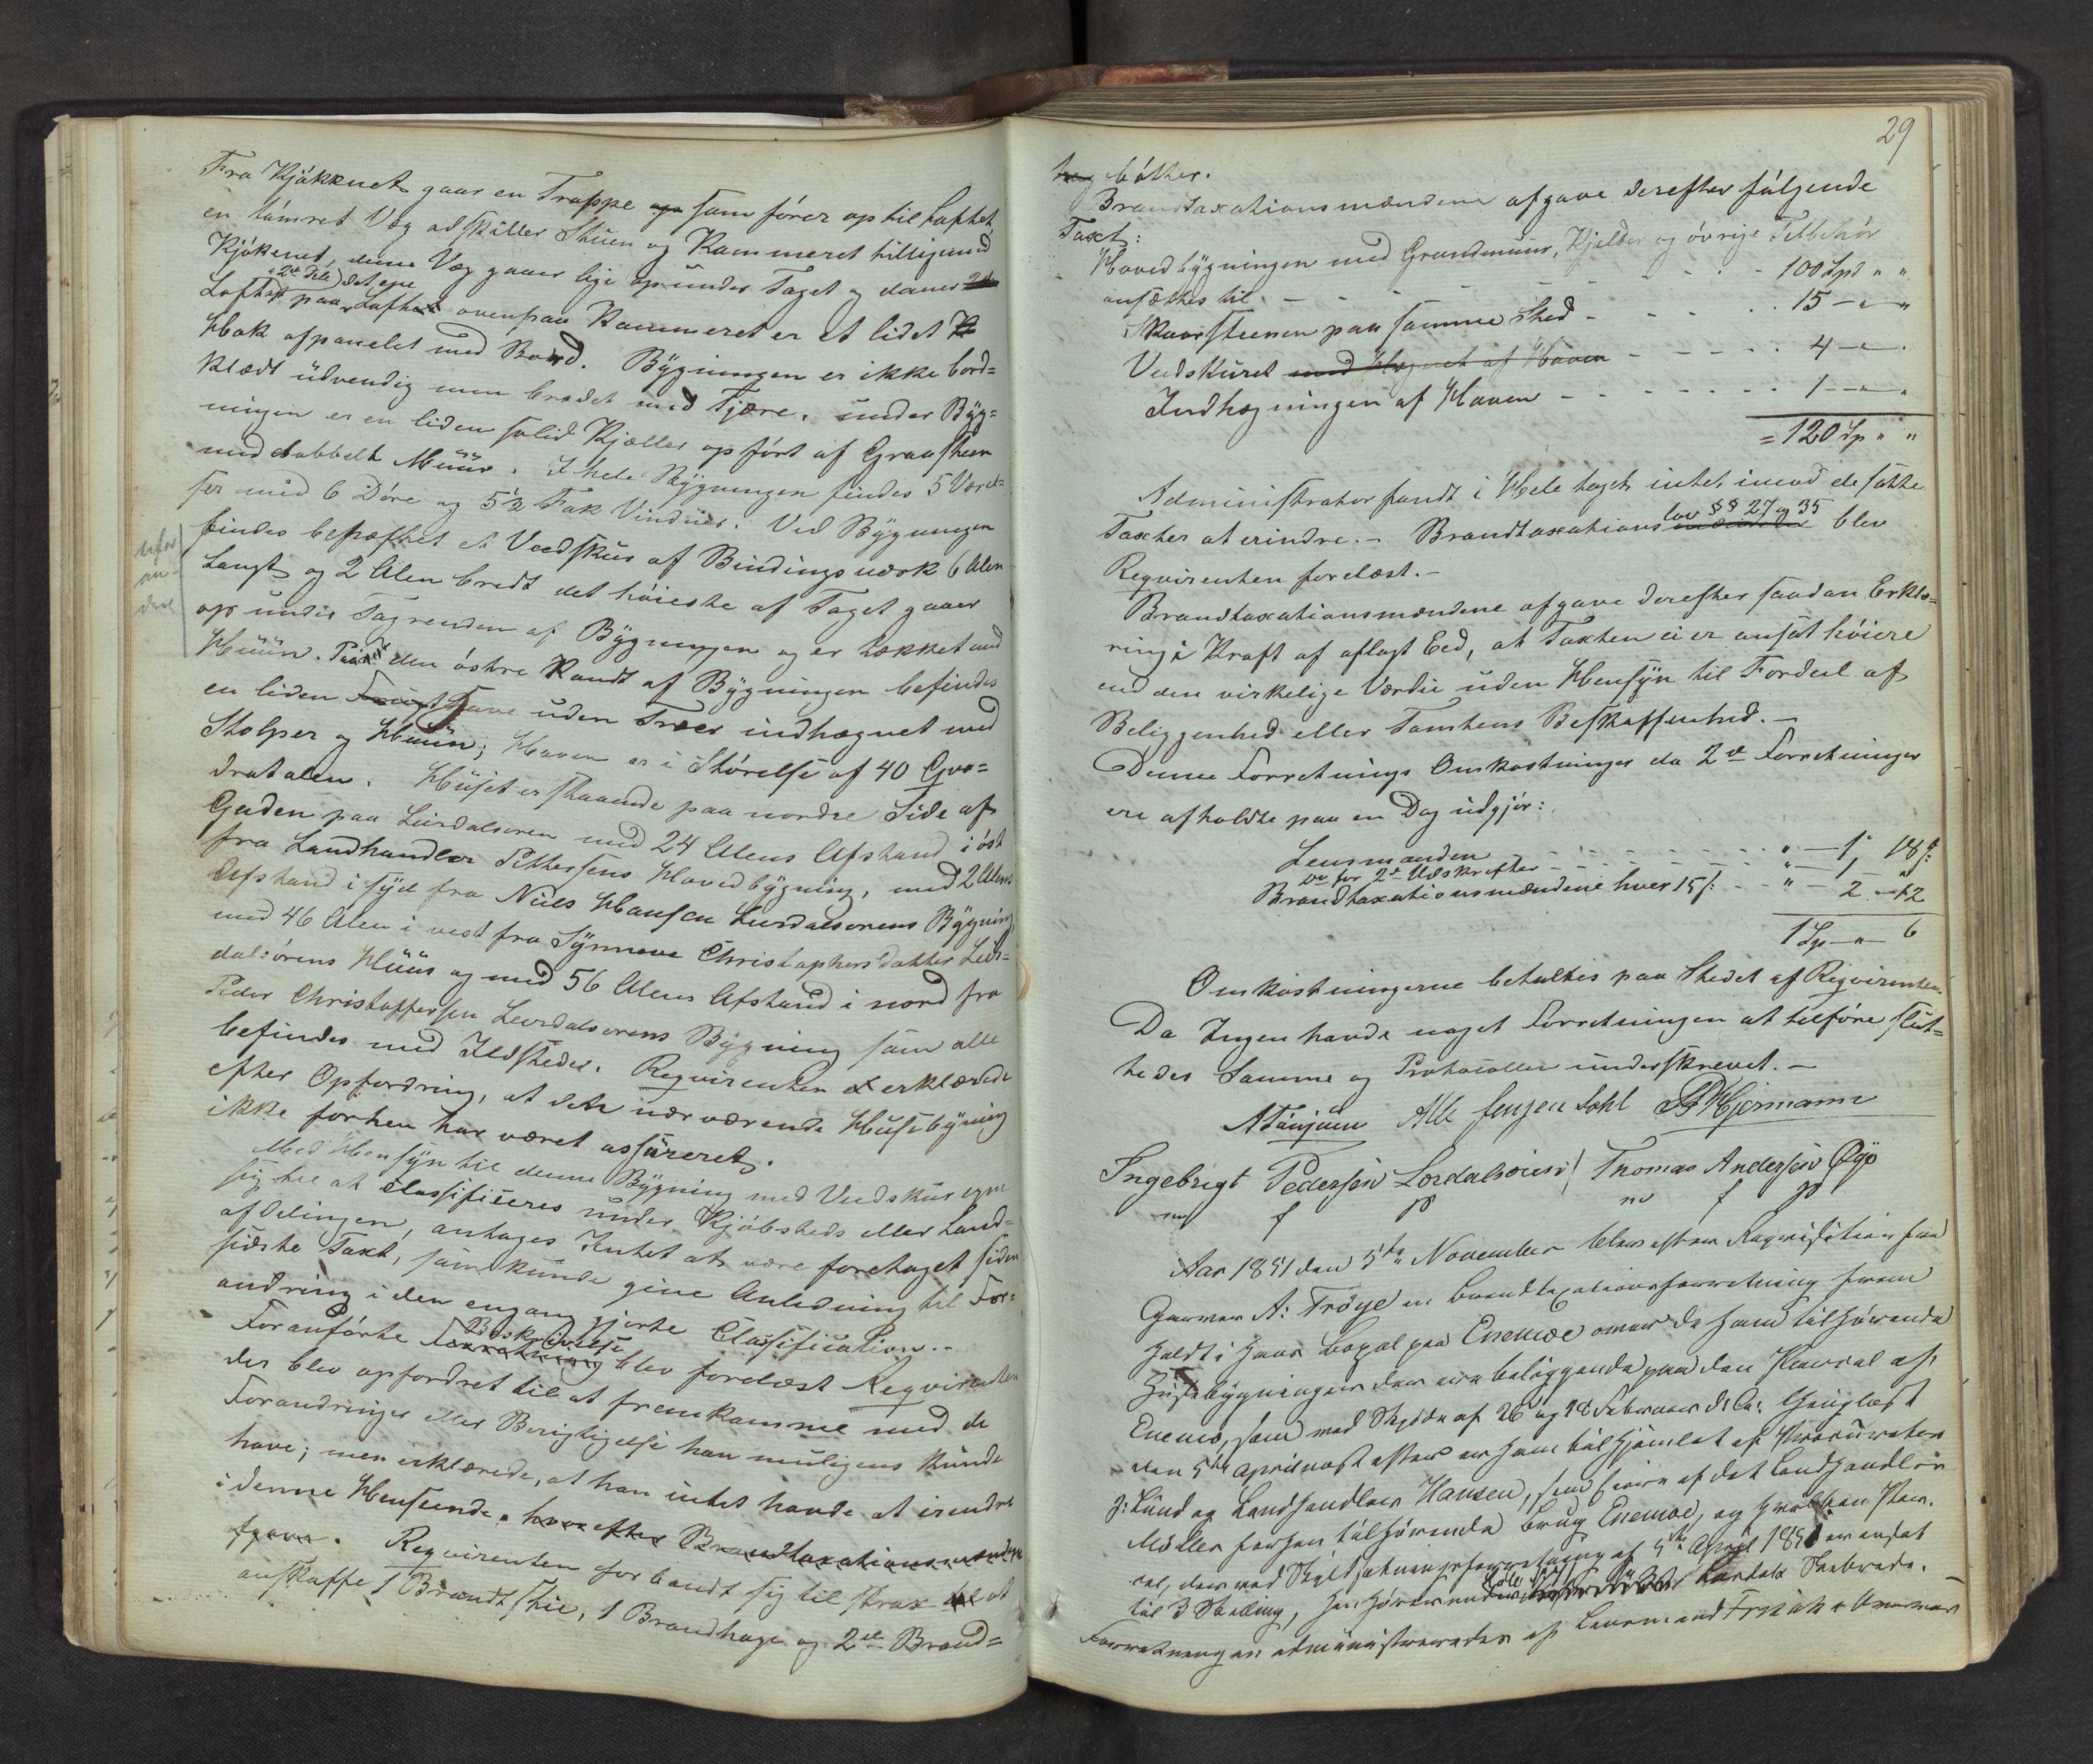 Fra Kjøkknet gaar en Trappe op som fører op til Loftet,
en tømret Væg adskiller Stuen og Kammeret tilligemed
Kjøkenet, denne Væg gaaer lige op under Taget og danner 2de
i 2de Dele) det ene
Loft paa Loftet ovenpaa Kammeret er et lidet K
Hok afpanelet med Bord. Bygningen er ikke bord=
klædt udvendig men brædet med Tjære. under Byg=
ningen er en liden solid Kjælder opført af Graasteen
med dobbelt Muur. I hele Bygningen findes 5 Værel=
ser med 6 Døre og 5½ Fak Vinduer. Ved Bygningen
findes befæstet et Veedskur af Bindingsværk 6 Alen
Langt og 2 Alen bredt det høieste af Taget gaaer
op under Tagrenden af Bygningen og er tækket med
ufor
an-
dret
Huun. Paa den østre Kandt af Bygningen befindes
en liden Frugt Have uden Træer indhægnet med
Stolper og Huun; Haven er i Størelse af 40 Qva=
dratalen. Huset er staaende paa nordre Side af
Gaden paa Lærdalsøren med 24 Alens Afstand i øst
fra Landhandler Pettersens Hovedbygning, med 2 Alens
Afstand i syd fra Niels Hansen Lærdalsørens Bygning
med 46 Alen i vest fra Synneve Christophersdatter Lær=
dalsørens Huus og med 56 Alens Afstand i nord fra
Peder Christoffersen Lærdalsørens Bygning som alle
befindes med Ildsteder. Reqvirenten erklærede
efter Opfordring, at dette nærværende Husebygning
ikke forhen har været assureret.
Med Hensyn til denne Bygning med Vedskur egne
sig til at classificeres under Kjøbsteds eller Land=
afdelingen, antages Intet at være foretaget siden
sidste Taxt, som kunde give Anledning til For=
andring i den engang gjorte Classification.-
Beskrivelse
Foranførte Forretning blev forelæst Reqvirenten
der blev opfordret til at fremkomme med de
Forandringer eller Berigtigelse han muligens kunde
have; men erklærede, at han intet havde at erindre
i denne Henseende. hvorefter Brandtaxationsmændene
afgave. Reqvirenten forbandt sig til strax at
anskaffe 1 Brandstie, 1 Brandhage og 2de Brand=
29
bøtter.
Brandtaxationsmændene afgave derefter følgende
Taxt:
Hovedbygningen med Grundmuur, Kjelder og øvrige Tilbehør
ansættes til. - - - - - - 100 Spd " "
Skorsteenen paa samme Sted - - - - 15 - " - "
Vedskuret med Hegnet af Haven - - - - - 4 - " - "
Indhægningen af Haven - - - - - - 1 - " - "
= 120 Sp " "
Administrator fandt i Hele taget intet imod de satte
lov §§ 27 og 35
Taxter at erindre. - Brandtaxations mændene blev
Reqvirenten forelæst. -
Brandtaxationsmændene afgave derefter saadan Erklæ=
ring i Kraft af aflagt Eed, at Taxten ei er ansat høiere
end den virkelige Værdie uden Hensyn til Fordeel af
Beliggenhed eller Tomtens Beskaffenhed. -
Denne Forretnings Omkostninger da 2de Forretninger
ere afholdte paa en Dag udgjør:
Lensmanden - - - - - - " - 1 " 18 ß
Do for 2de Udskrifter - - - - - " - 1 "
Brandtaxationsmændene hver 15 ß. - - " - 2 - 12
1 Sp - " - 6
Omkostningerne betaltes paa Stedet af Reqvirenten.
Da Ingen havde noget Forretningen at tilføre slut=
tedes Samme og Protocollen underskrevet. -
Ingebrigt Pedersen Lordalsøien Thomas Andersen Øye
m f P m f P
Aar 1851 den 5te November blev efter Reqvisition fra
Garver A: Trøye en Brandtaxationsforretning frem
holdt i hans Bopæl paa Enemoe over de ham tilhørende
Husebygninger der ere beliggende paa den Parcel af
Enemo, som med Skjøde af 26 og 28 Februar d: A: thinglæst
den 5te April næst efter er ham tilhjemlet af Procurator
J: Lund og Landhandler Hansen, som Eiere af det Landhandler
Møller forhen tilhørende Brug Enemoe, og hvilken Par-
cel, der ved Skyldsætningsforretning af 5te April 1851 er ansat
til 3 Skilling, henhørende under Lærdals Skibrede.
Forretningen administreredes af Lensmand